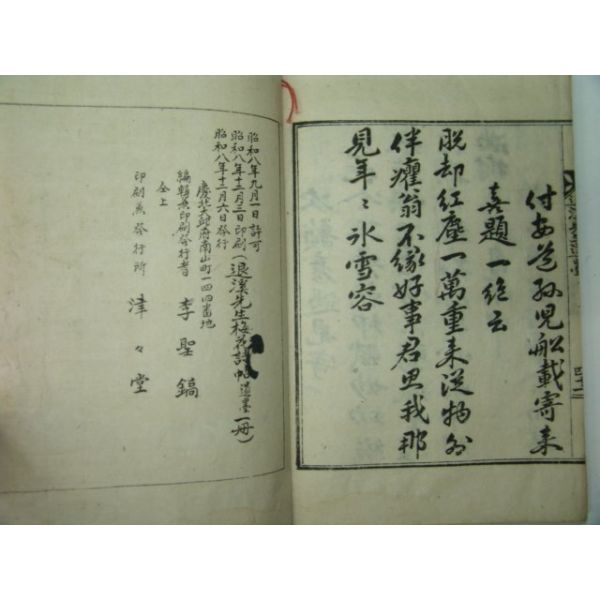 付安道孫兒船載寄来
喜題一絶云
脱却紅塵一萬重来從物外
伴癯翁不緣好事君思我那
見年〻氷雪容
昭和八年九月一日許可
昭和八年十二月三日印刷(退溪先生梅花詩帖遺墨一冊)
昭和八年十二月六日發行
慶北大邱府南山町一四四番地
編輯兼印刷發行者 李聖鎬
仝上
印刷兼發行所 津々堂